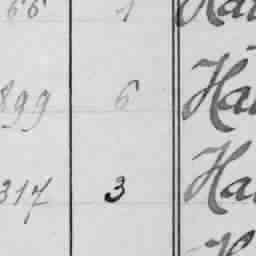 66 1 Ha
899 6 Ha
317 3 Ha